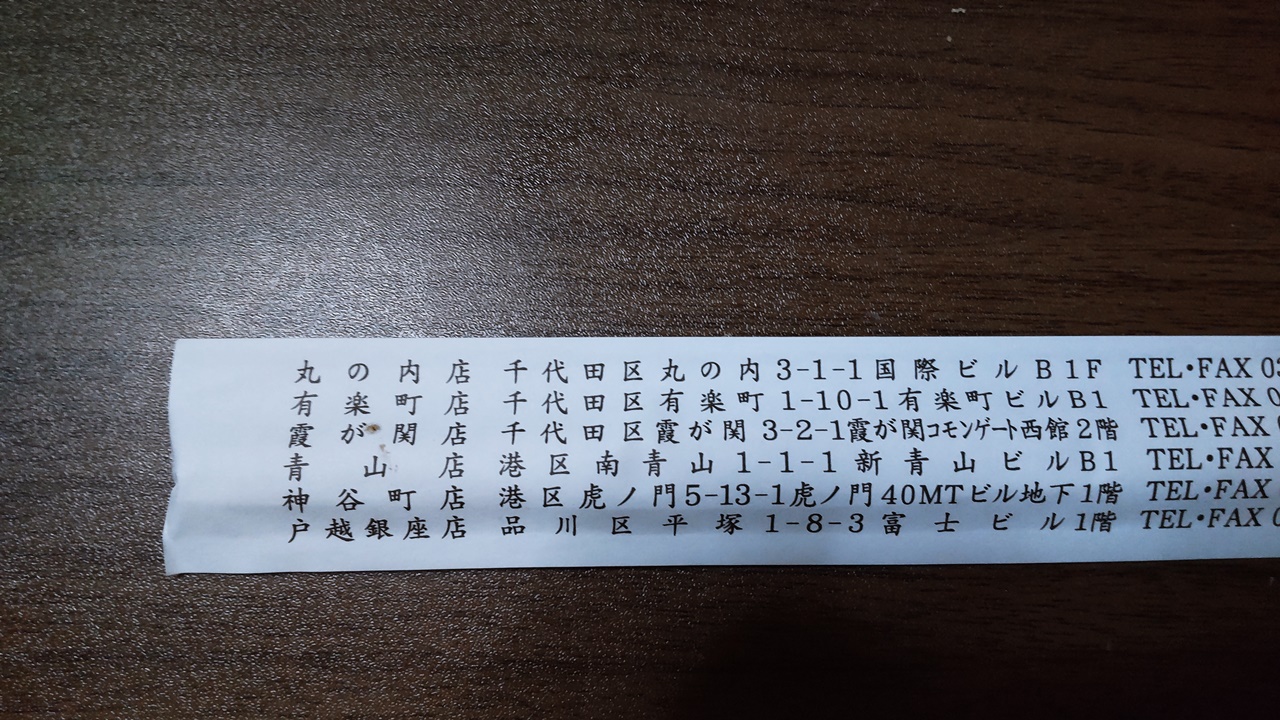 丸の内店 千代田区丸の内3-1-1国際ビルB1F TEL・FAX 03
有楽町店 千代田区有楽町1-10-1有楽町ビルB1 TEL・FAX 0
霞が関店 千代田区霞が関3-2-1霞が関コモンゲート西館2階 TEL・FAX
青山店 港区南青山1-1-1新青山ビルB1 TEL・FAX
神谷町店 港区虎ノ門5-13-1虎ノ門40MTビル地下1階 TEL・FAX
戸越銀座店 品川区平塚1-8-3富士ビル1階 TEL・FAX 0